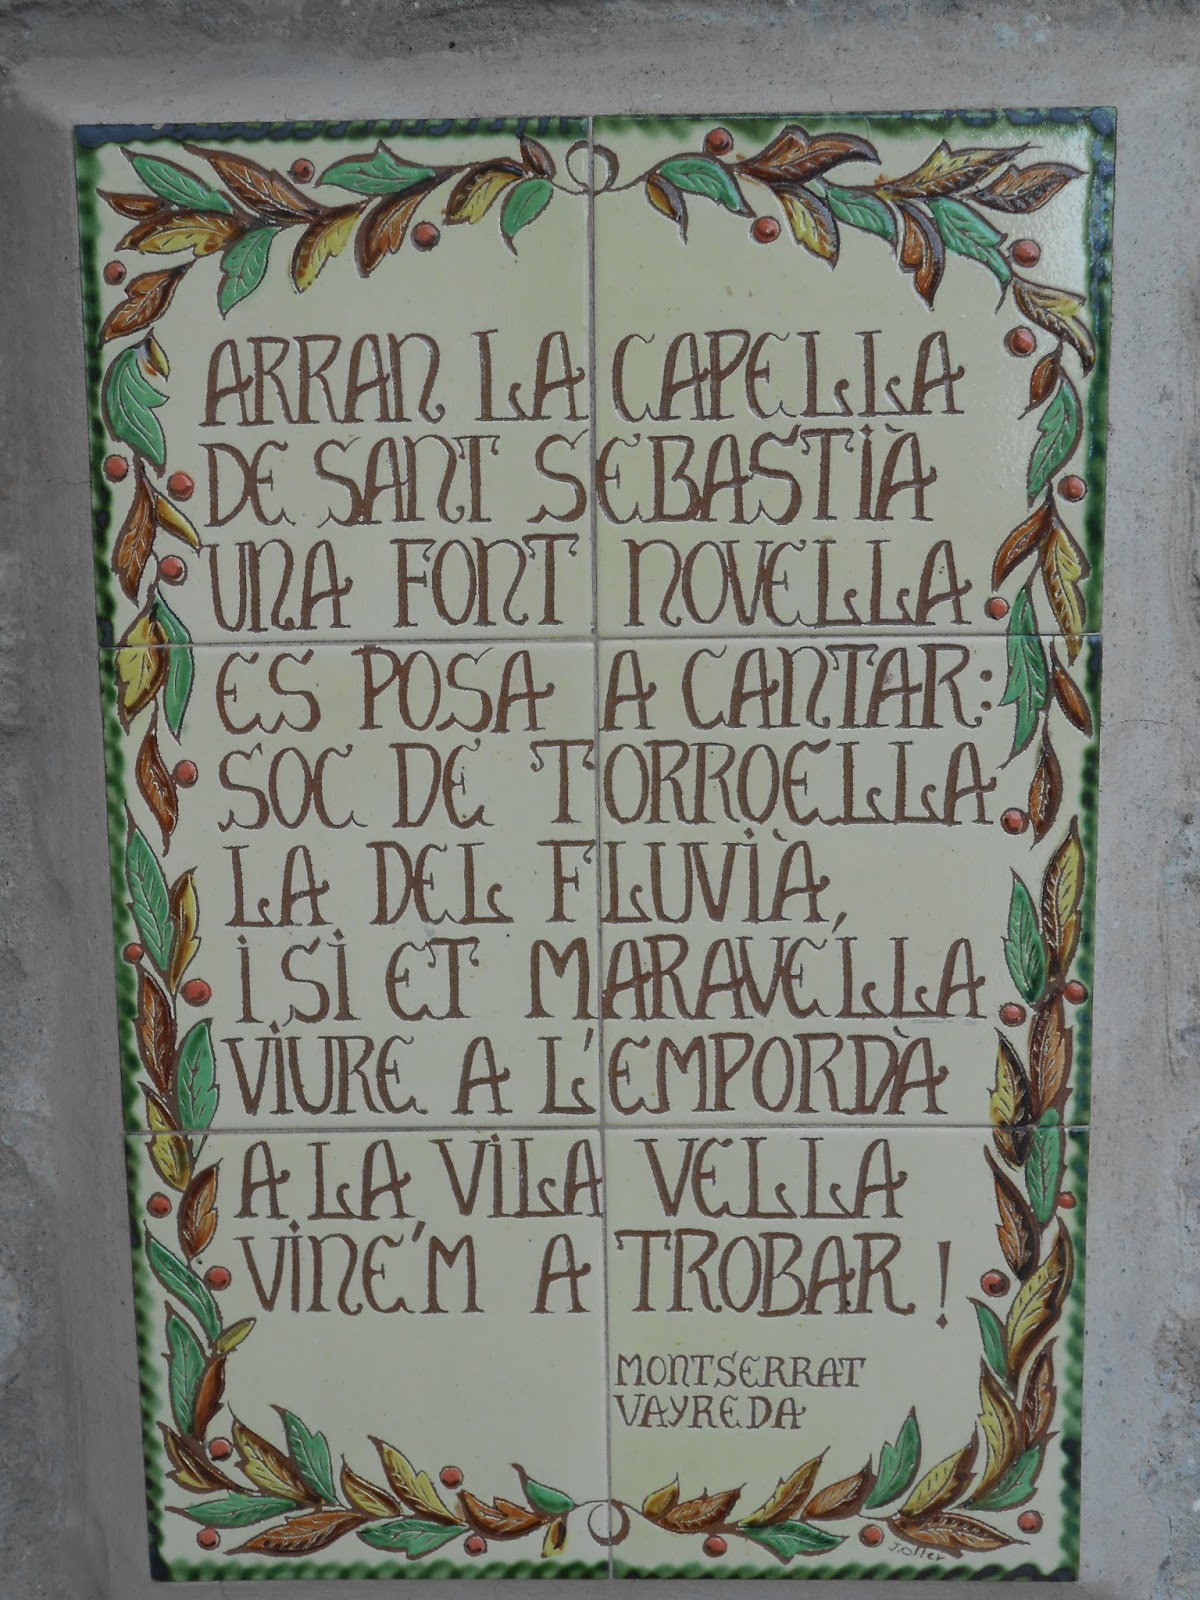 ARRAN LA CAPELLA
DE SANT SEBASTIÀ
UNA FONT NOVELLA
ES POSA A CANTAR:
SOC DE TORROELLA
LA DEL FLUVIÀ,
I SI ET MARAVELLA
VIURE A L'EMPORDÀ
A LA VILA VELLA
VINE'M A TROBAR!
MONTSERRAT
VAYREDA
J. Oller